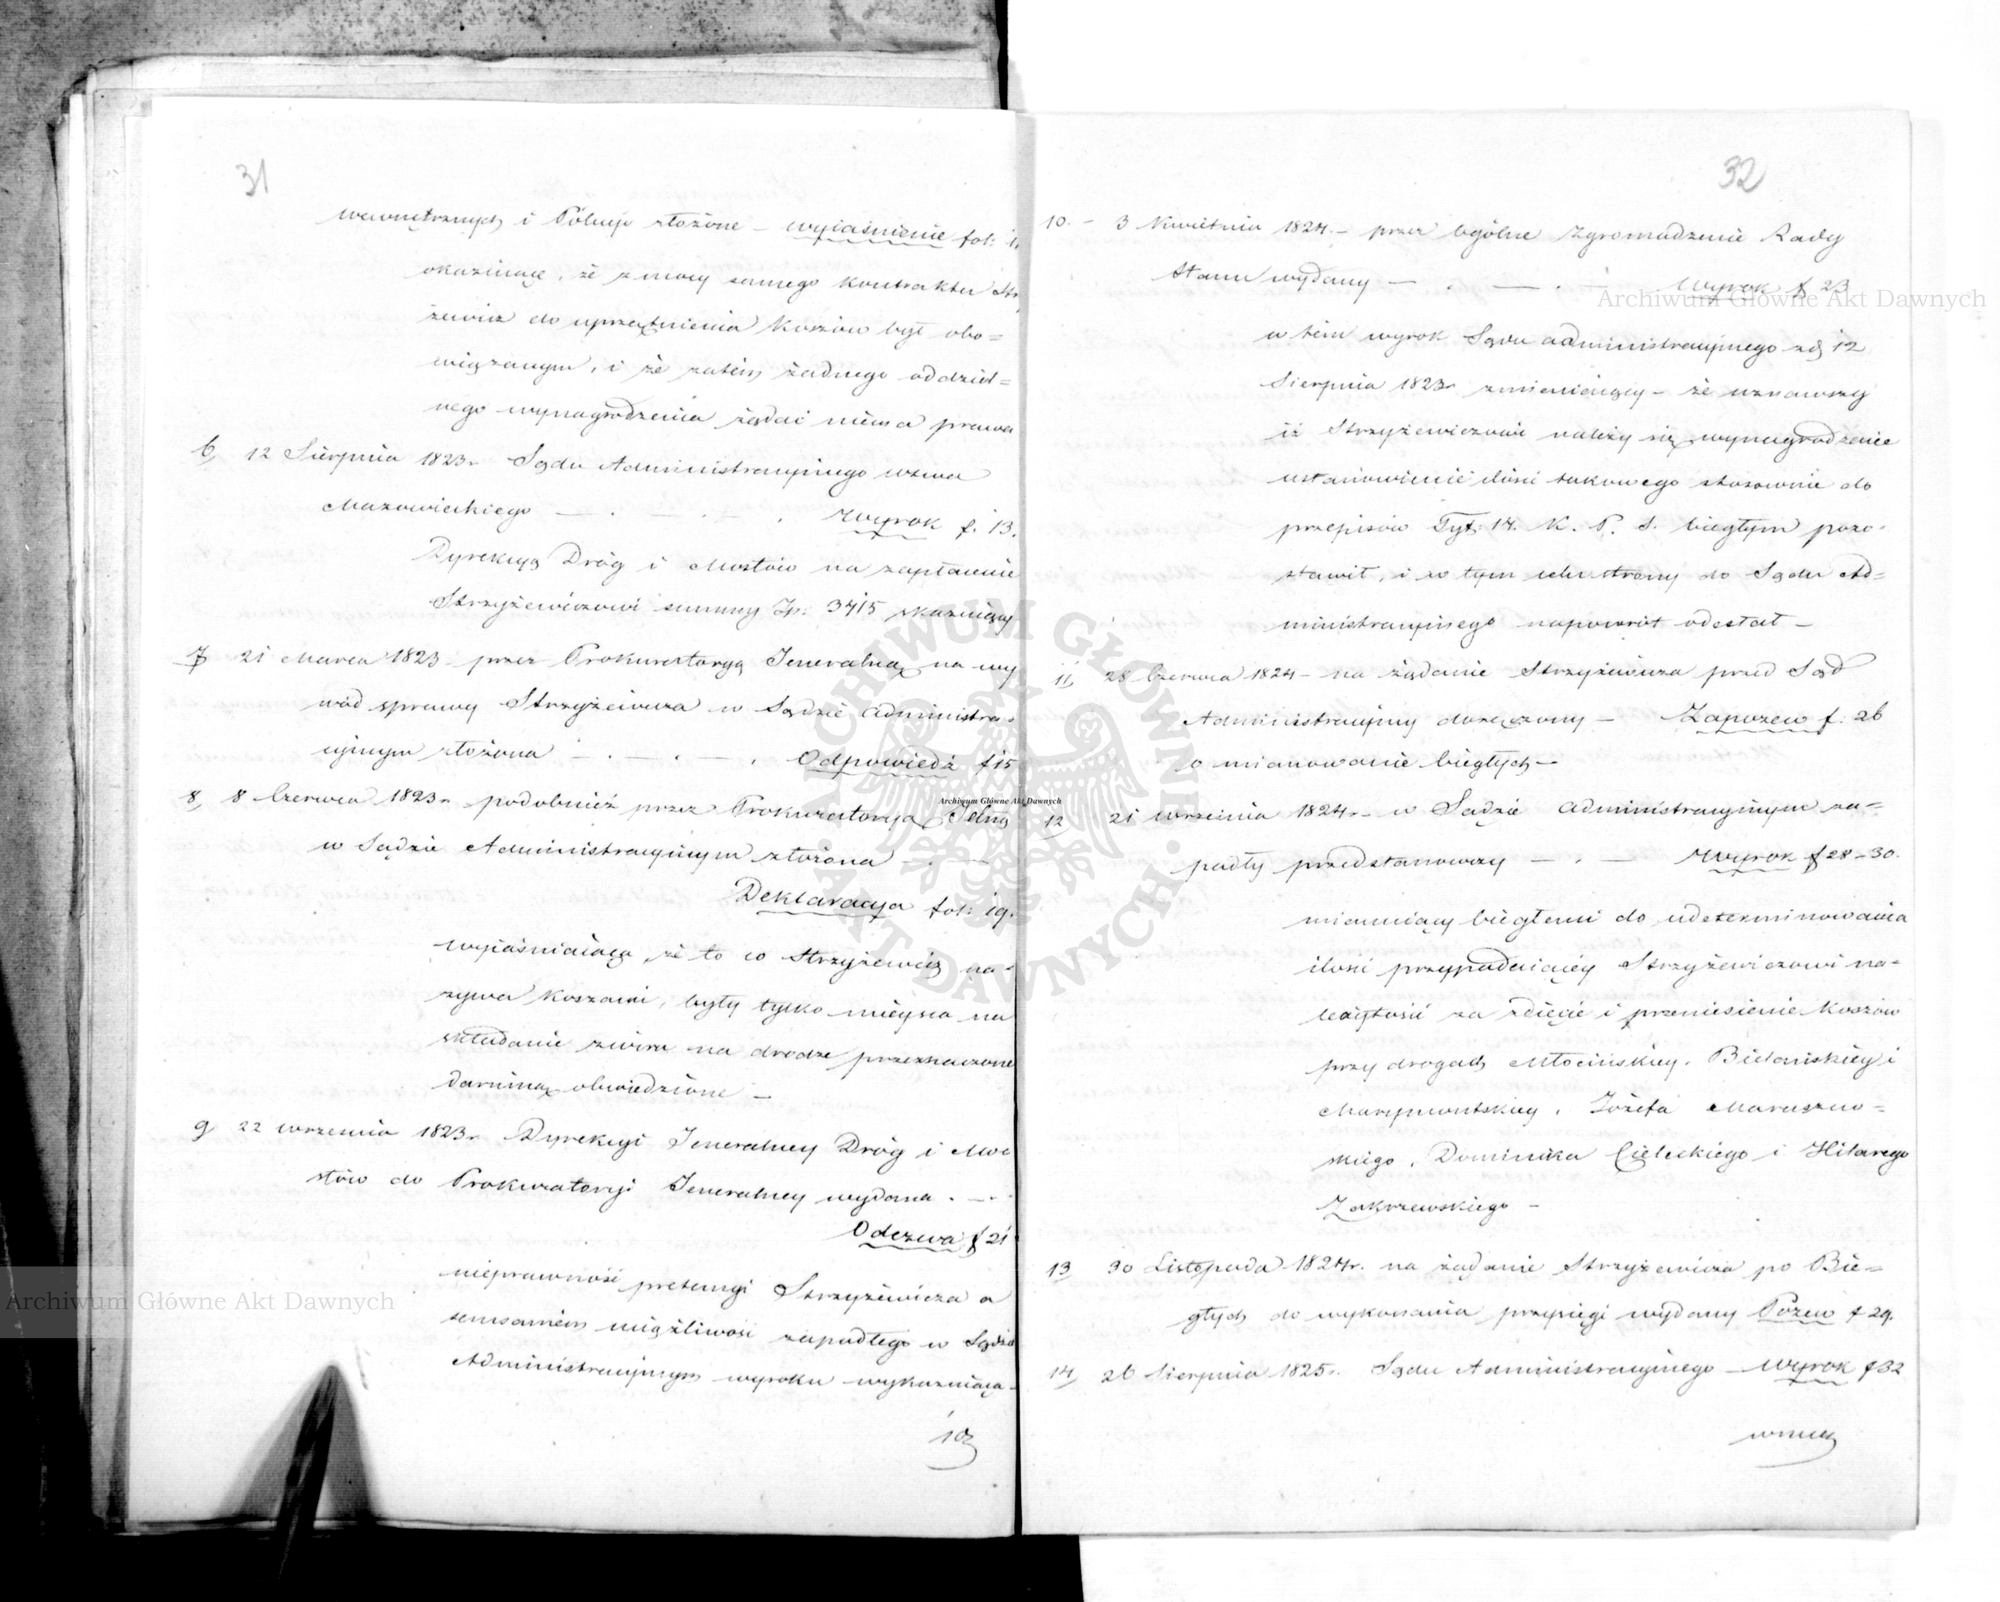 31
wewnętrznych i Policyi złożone – wyiaśnienie fol: 11
okazuiące, że z mocy samego kontraktu Str
żewicz do uprzątnienia koszów był obo=
wiązanym, i że zatém żadnego oddziel=
nego wynagrodzenia żądać niema prawa
6, 12 Sierpnia 1823r Sądu Administracyinego wdwa
Mazowieckiego — . — . Wyrok f. 13.
Dyrekcyą Dróg i Mostów na zapłacenie
Strzyżewiczowi summy Zp: 3415 skazuiący
7 21 Marca 1823 przez Prokuratoryą Jeneralną na wy
wód sprawy Strzyżewicza w Sądzie Administra=
cyinym złożona — . — . — . Odpowiedź f 15
8, 8 Czerwca 1823r podobnież przez Prokuratoryą Jelną
w Sądzie Administracyinym złożona — . —
Deklaracya fol: 19.
wyiaśniaiąca, że to co Strzyżewicz na=
zywa koszami, były tylko mieysca na
składanie żwiru na drodze przeznaczone
darniną obwiedzione —
9 22 Września 1823r Dyrekcyi Jeneralney Dróg i Mo=
stów do Prokuratoryi Jeneralney wydana . — .
Odezwa f 21
nieprawność pretensyi Strzyżewicza a
temsamém uciążliwość zapadłego w Sądzie
Administracyinym wyroku wykazuiąca –
10,
32
10. – 3 Kwietnia 1824. – przez Ogólne Zgromadzenie Rady
Stanu wydany — . — . — Wyrok f 23
a tém wyrok Sądu administracyinego zdj 12
Sierpnia 1823r zmieniaiący – że uznawszy
iż Strzyżewiczowi należy się wynagrodzenie
ustanowienie ilości takowego stosownie do
przepisów Tyt: 14. K. P. S. biegłym pozo=
stawił, i w tym celu strony do Sądu Ad=
ministracyinego napowrót odesłał –
11, 28 Czerwca 1824 – na żądanie Strzyżewicza przed Sąd
Administracyiny doręczony – Zapozew f: 26
o mianowanie biegłych –
12 21 Września 1824r – w Sądzie Administracyinym za=
padły przedstanowczy — . — Wyrok f 28–30.
mianuiący biegłemi do udeterminowania
ilości przypadaiącéy Strzyżewiczowi na=
leżytości za zdięcie i przeniesienie koszów
przy drogach Młocińskiey, Bielańskiey i
Marymontskiey, Józefa Maruszew=
skiego, Dominika Cieleckiego i Hilarego
Zakrzewskiego –
13 30 Listopada 1824r. na żądanie Strzyżewicza po Bie=
głych do wykonania przysięgi wydany Pozew f 29.
14, 26 Sierpnia 1825r. Sądu Administracyinego – Wyrok f 32
Archiwum Główne Akt Dawnych
Archiwum Główne Akt Dawnych
Archiwum Główne Akt Dawnych
ARCHIWUM GŁÓWNE AKT DAWNYCH